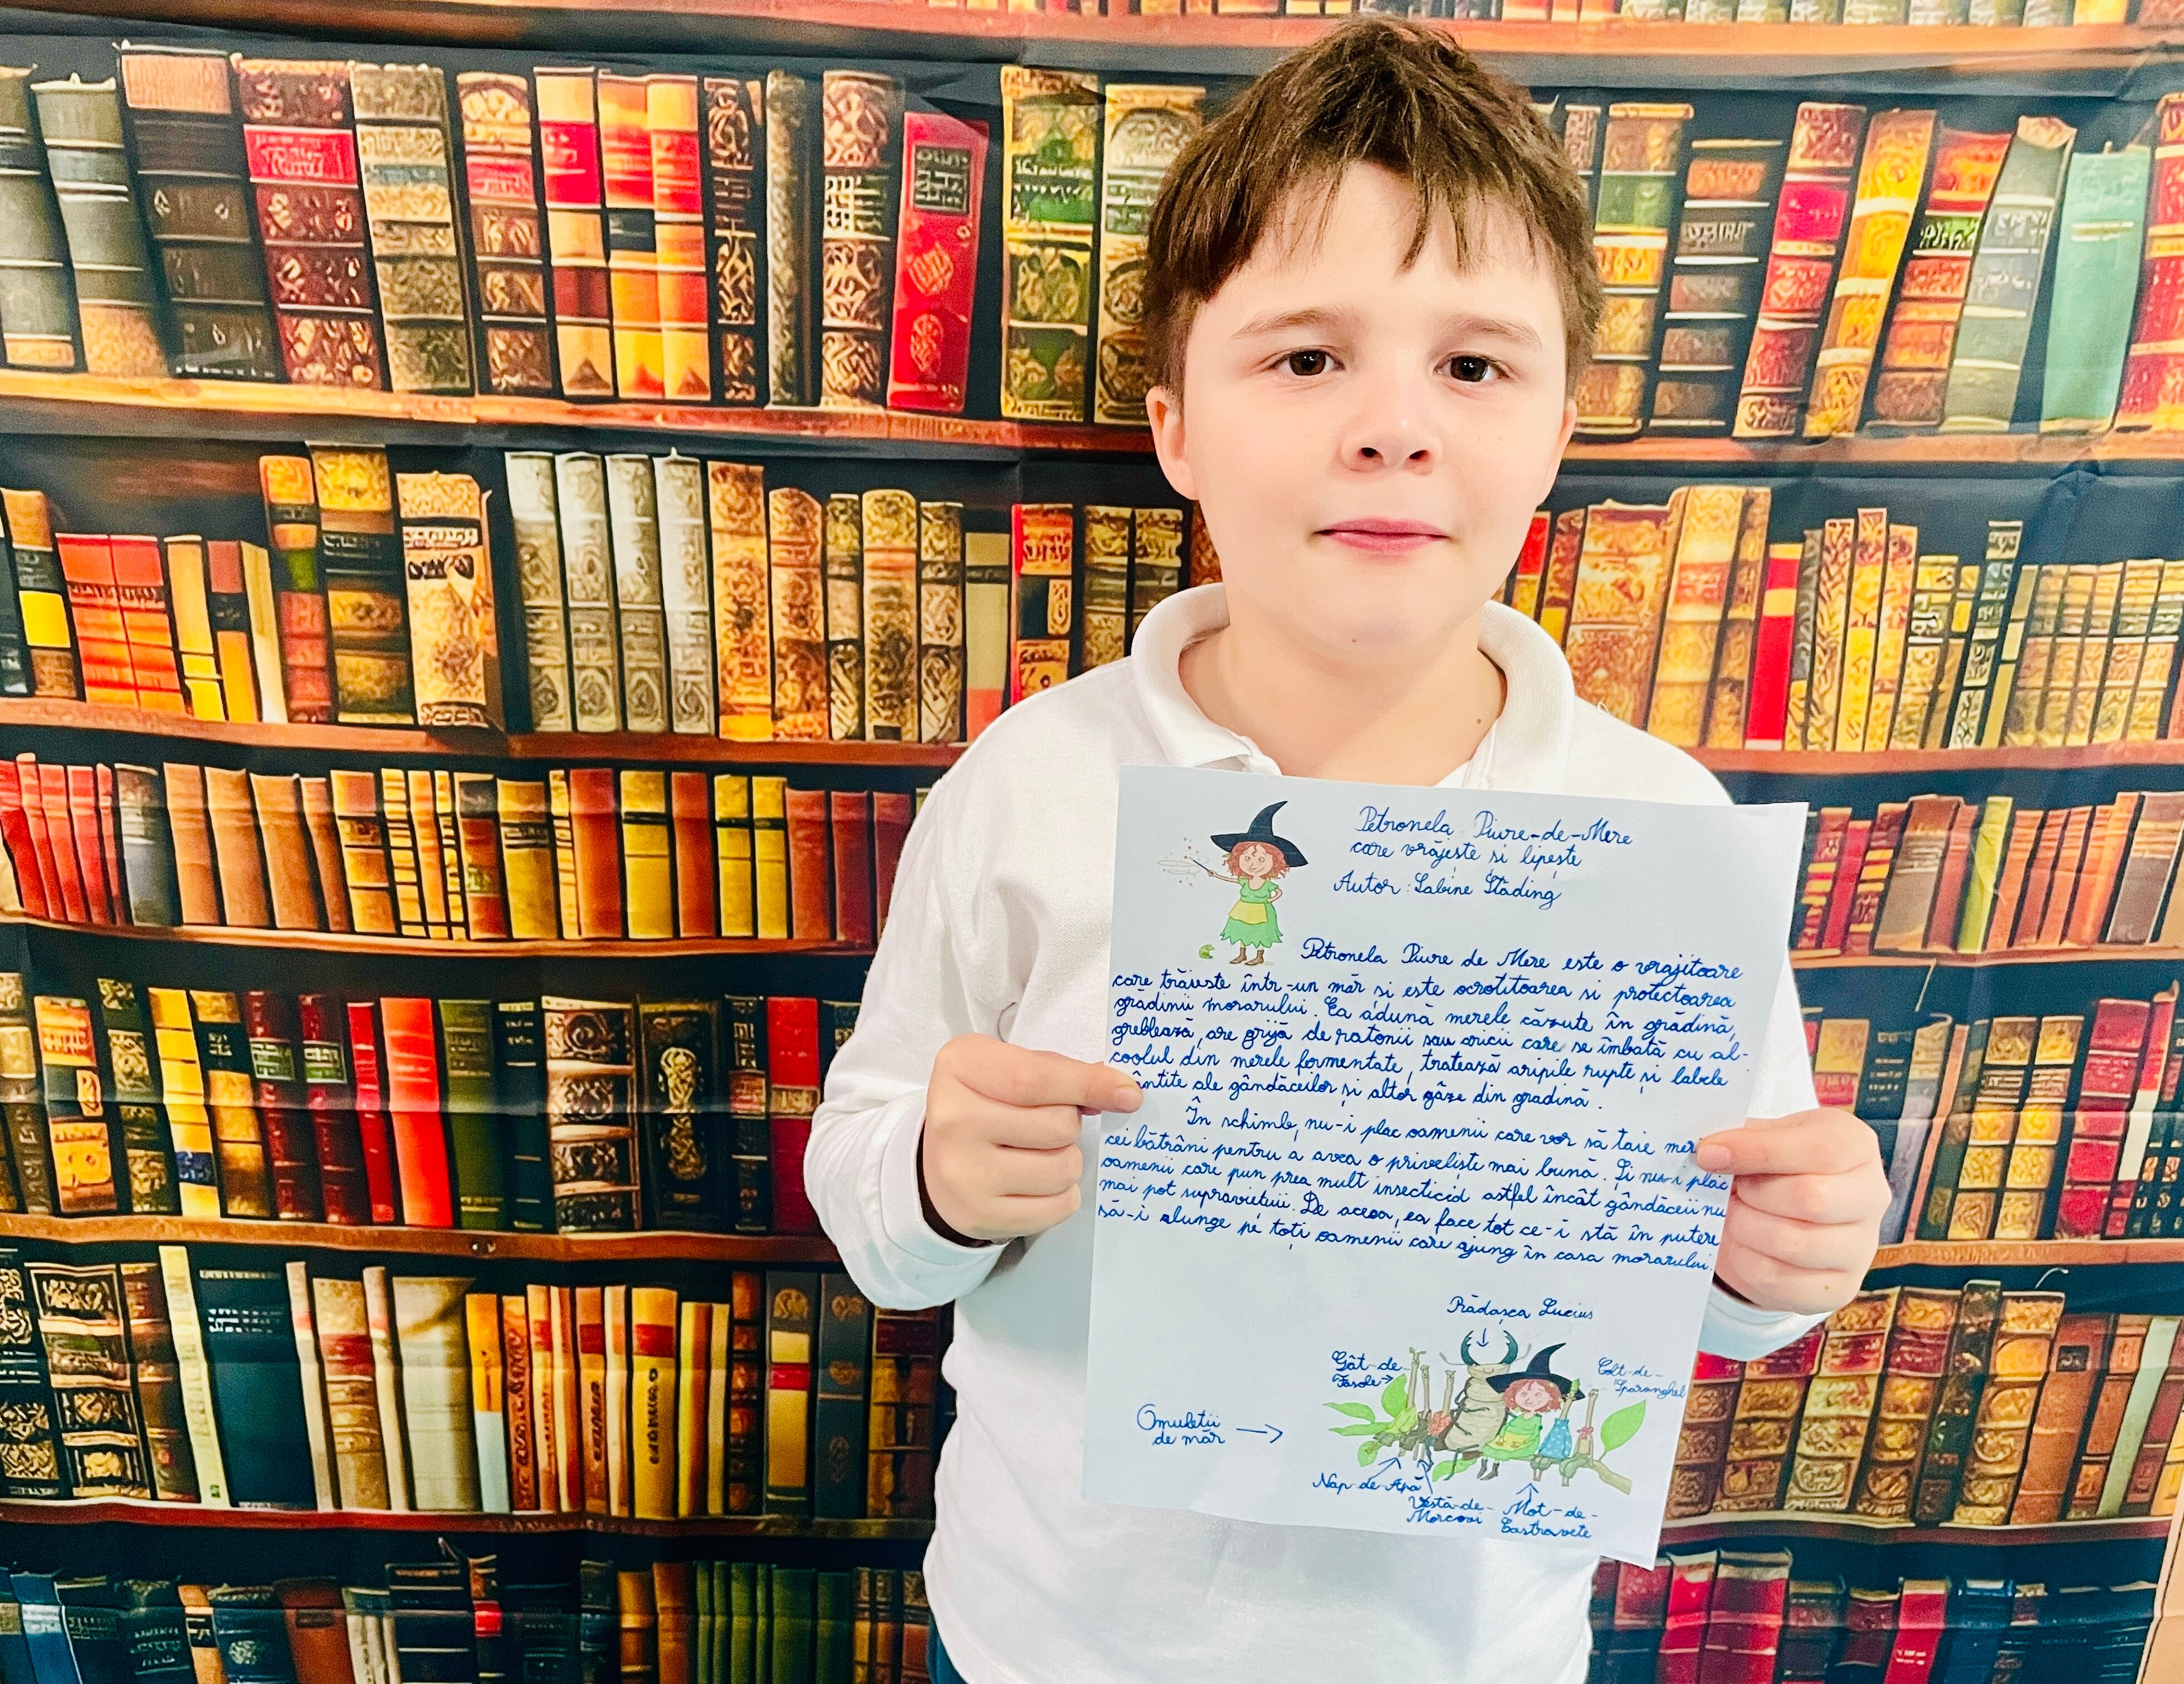 Petronela Piure-de-Mere
care vrăjește și lipește
Autor: Sabine Städing
Petronela Piure de Mere este o vrajitoare
care trăiește într-un măr și este ocrotitoarea si protectoarea
grădinii morarului. Ea adună merele căzute în grădină,
greblează, are grijă de ratonii sau aricii care se îmbată cu al-
coolul din merele fermentate, tratează aripile rupte și labele
ântite ale gândăceilor și altor gâze din gradină.
În schimb, nu-i plac oamenii care vor să taie meri
cei bătrâni pentru a avea o priveliște mai bună. Și nu-i plac
oamenii care pun prea mult insecticid astfel încât gândăceii nu
mai pot supraviețuii. De aceea, ea face tot ce-i stă în putere
să-i alunge pe toți oamenii care ajung în casa morarului.
Rădașca Lucius
Gât-de-
Fasole
Colt-de-
Sparanghel
Omuletii
de măr
Nap-de-Apă
Vestă-de-
Morcovi
Mot-de-
Castravete